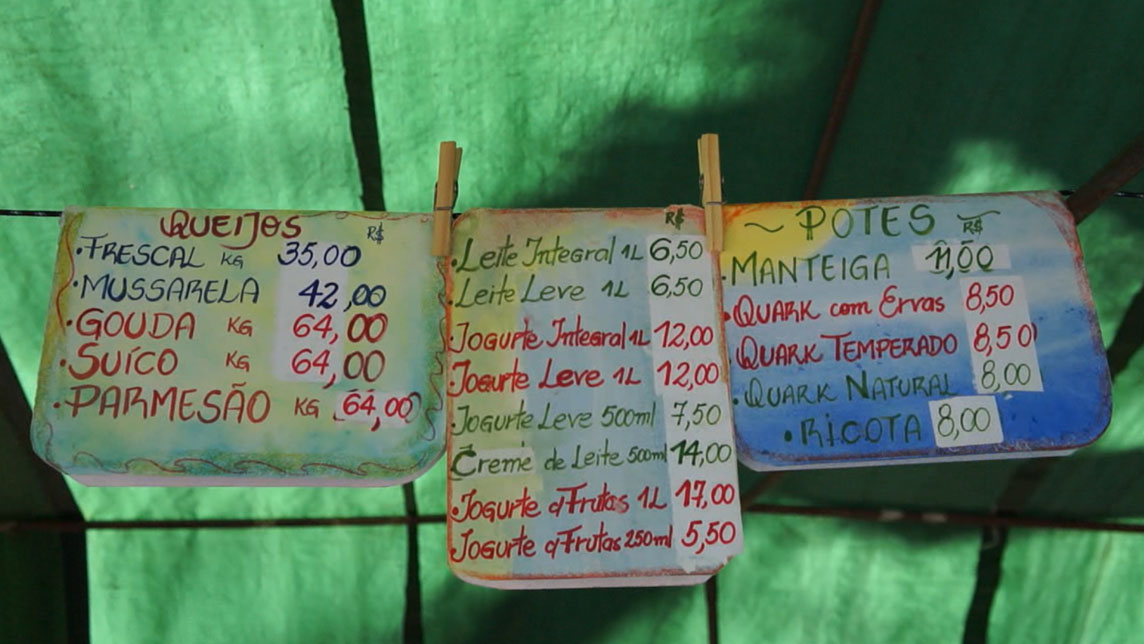 QUEIJOS R$
• FRESCAL KG 35,00
• MUSSARELA 42,00
• GOUDA KG 64,00
• SUÍCO KG 64,00
• PARMESÃO KG 64,00
R$
• Leite Integral 1L 6,50
• Leite Leve 1L 6,50
• Jogurte Integral 1L 12,00
• Jogurte Leve 1L 12,00
• Jogurte Leve 500ml 7,50
Creme de Leite 500ml 14,00
• Jogurte c/Frutas 1L 17,00
• Jogurte c/Frutas 250ml 5,50
~ POTES R$
• MANTEIGA 11,00
• QUARK com Ervas 8,50
• QUARK TEMPERADO 8,50
• QUARK NATURAL 8,00
• RICOTA 8,00